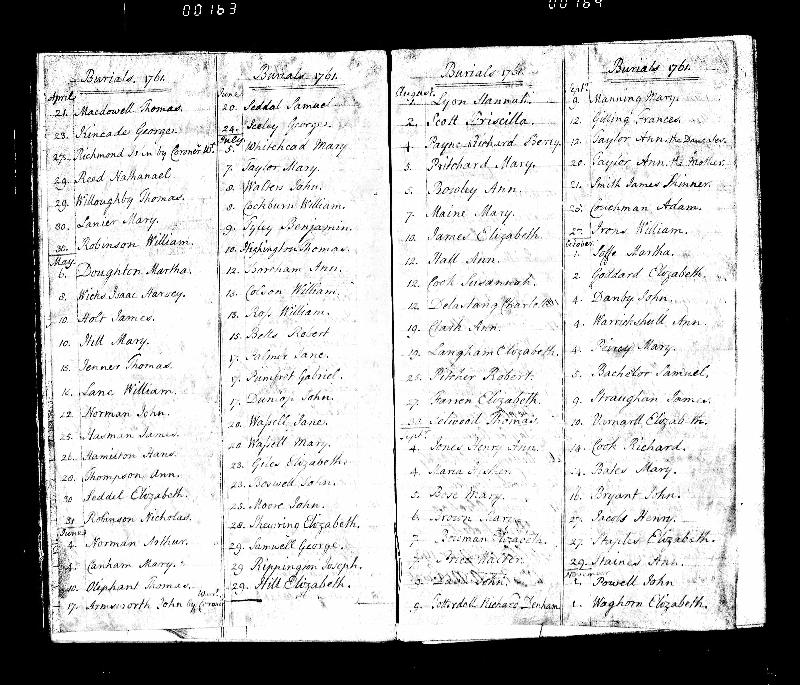 00163
00164
Burials. 1761.
April
21. Macdowell Thomas.
23. Kincade George.
27. Richmond Jn in by Coroner Wt.
29. Reed Nathanael
29. Willoughby Thomas.
30. Lanier Mary.
30. Robinson William.
May.
6. Doughton Martha.
8. Wicks Isaac Harvey.
10. Holt James.
10. Hill Mary.
15. Jenner Thomas.
16. Lane William.
22. Norman John.
25. Hasman James.
26. Hamilton Hans.
28. Thompson Ann.
30. Seddel Elizabeth.
31. Robinson Nicholas.
June
4. Norman Arthur.
4. Canham Mary.
10. Oliphant Thomas.
17. Armsworth John by Coroner Wart.
Burials 1761.
June
20. Seddal Samuel
24. Seeley George.
July
5. Whitehead Mary
7. Taylor Mary.
8. Walters John.
8. Cockburn William.
9. Benjamin.
10. Thomas.
12. Bareham Ann.
13. Colson William.
13. Ross William.
15. Betts Robert
17. Palmer Jane.
17. Pumfret Gabriel.
17. Dunlop John.
20. Wassell Jane.
20. Wassell Mary.
23. Giles Elizabeth.
23. Boswell John.
25. Moore John.
28. Shewring Elizabeth.
29. Samwell George.
29 Rippington Joseph.
29. Hill Elizabeth.
Burials 1761.
August.
1. Lyon Hannah.
2. Scott Priscilla.
4. Payne Richard Berry.
5. Pritchard Mary.
5. Bowley Ann.
7. Maine Mary.
10. James Elizabeth.
12. Hall Ann.
12. Cock Susannah.
12. Charlotte
19. Clark Ann.
19. Langham Elizabeth.
25. Pitcher Robert.
27. Farren Elizabeth.
Selwood Thomas.
Sept.
4. Jones Henry Ann.
4. Maria
5. Bose Mary.
6. Brown Mary
7. Bowman Elizabeth.
7. Price Walter.
9. John.
9. Richard Denham
Burials. 1761.
Sept.
9. Manning Mary.
12. Frances.
12. Taylor Ann, the Daughter.
20. Taylor Ann, the Mother.
21. Smith James Skinner.
25. Couchman Adam.
27. Irons William.
October.
1. Martha.
2. Goddard Elizabeth.
4. Danby John.
4. Ann.
4. Mary.
5. Bachelor Samuel.
9. Straughan James.
10. Elizabeth.
14. Cock Richard.
14. Bates Mary.
16. Bryant John.
27. Jacobs Henry.
27. Staples Elizabeth.
29. Staines Ann.
Novem.
1. Powell John
1. Waghorn Elizabeth.